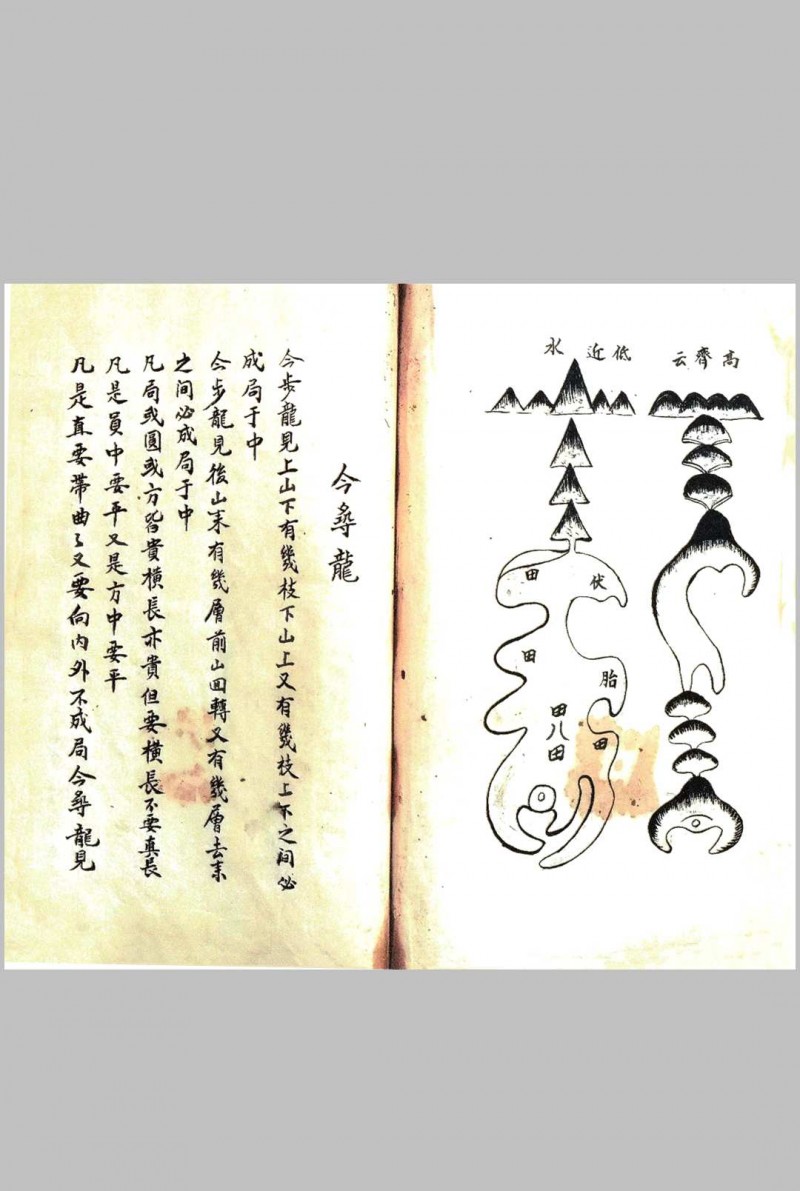 高齊云
低近水
伏
胎
田
田
田八田
田
今尋龍
今步龍見上山下有幾枝下山上又有幾枝上下之間必
成局于中
今步龍見後山来有幾層前山回轉又有幾層去来
之間必成局于中
凡局或圓或方皆貴橫長亦貴但要橫長不要真長
凡是員中要平又是方中要平
凡是直要帶曲曲又要向内外不成局今尋龍見